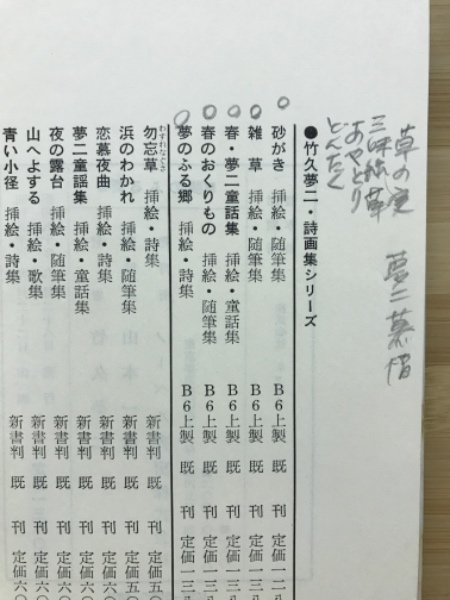 草の実 夢二慕情
三味線草
あやとり
どんたく
●竹久夢二・詩画集シリーズ
砂がき 挿絵・随筆集 B6上製 既刊 定価一二八
雑草 挿絵・随筆集 B6上製 既刊 定価一二八
春・夢二童話集 挿絵・童話集 B6上製 既刊 定価一三八
春のおくりもの 挿絵・随筆集 B6上製 既刊 定価一三八
夢のふる郷 挿絵・詩集 B6上製 既刊 定価一三八
勿忘草 わすれなぐさ 挿絵・詩集 新書判 既刊 定価五〇
浜のわかれ 挿絵・随筆集 新書判 既刊 定価五〇
恋慕夜曲 挿絵・詩集 新書判 既刊 定価六〇
夢二童謡集 挿絵・童話集 新書判 既刊 定価六〇
夜の露台 挿絵・随筆集 新書判 既刊 定価六〇
山へよする 挿絵・歌集 新書判 既刊 定価六〇
青い小径 挿絵・詩集 新書判 既刊 定価六〇